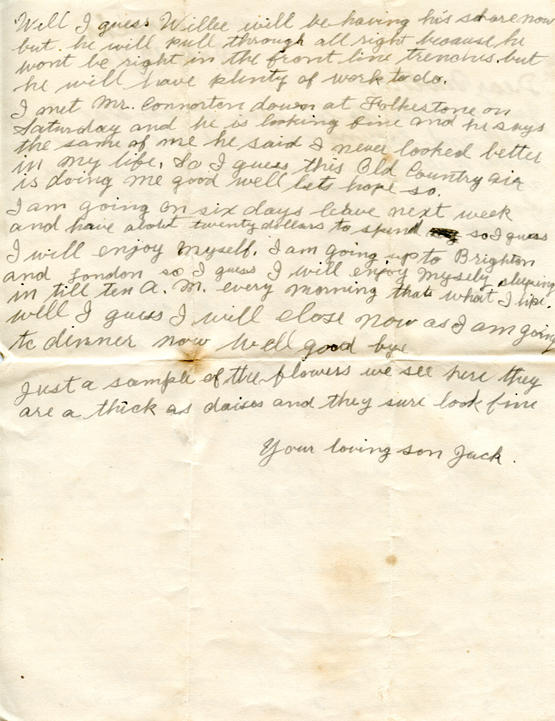 Well I guess Willie will be having his share now
but he will pull through all right because he
wont be right in the front line trenches but
he will have plenty of work to do.
I met Mr. Connorton down at Folkestone on
Saturday and he is looking fine and he says
the same of me he said I never looked better
in my life, So I guess this Old Country air
is doing me good well lets hope so.
I am going on six days leave next week
and have about twenty dollars to spend so I guess
I will enjoy myself. I am going up to Brighton
and London so I guess I will enjoy myself sleeping
in till ten A. M. every morning thats what I like
well I guess I will close now as I am going
to dinner now Well good bye
Just a sample of the flowers we see here they
are a thick as daises and they sure look fine
Your loving son Jack.